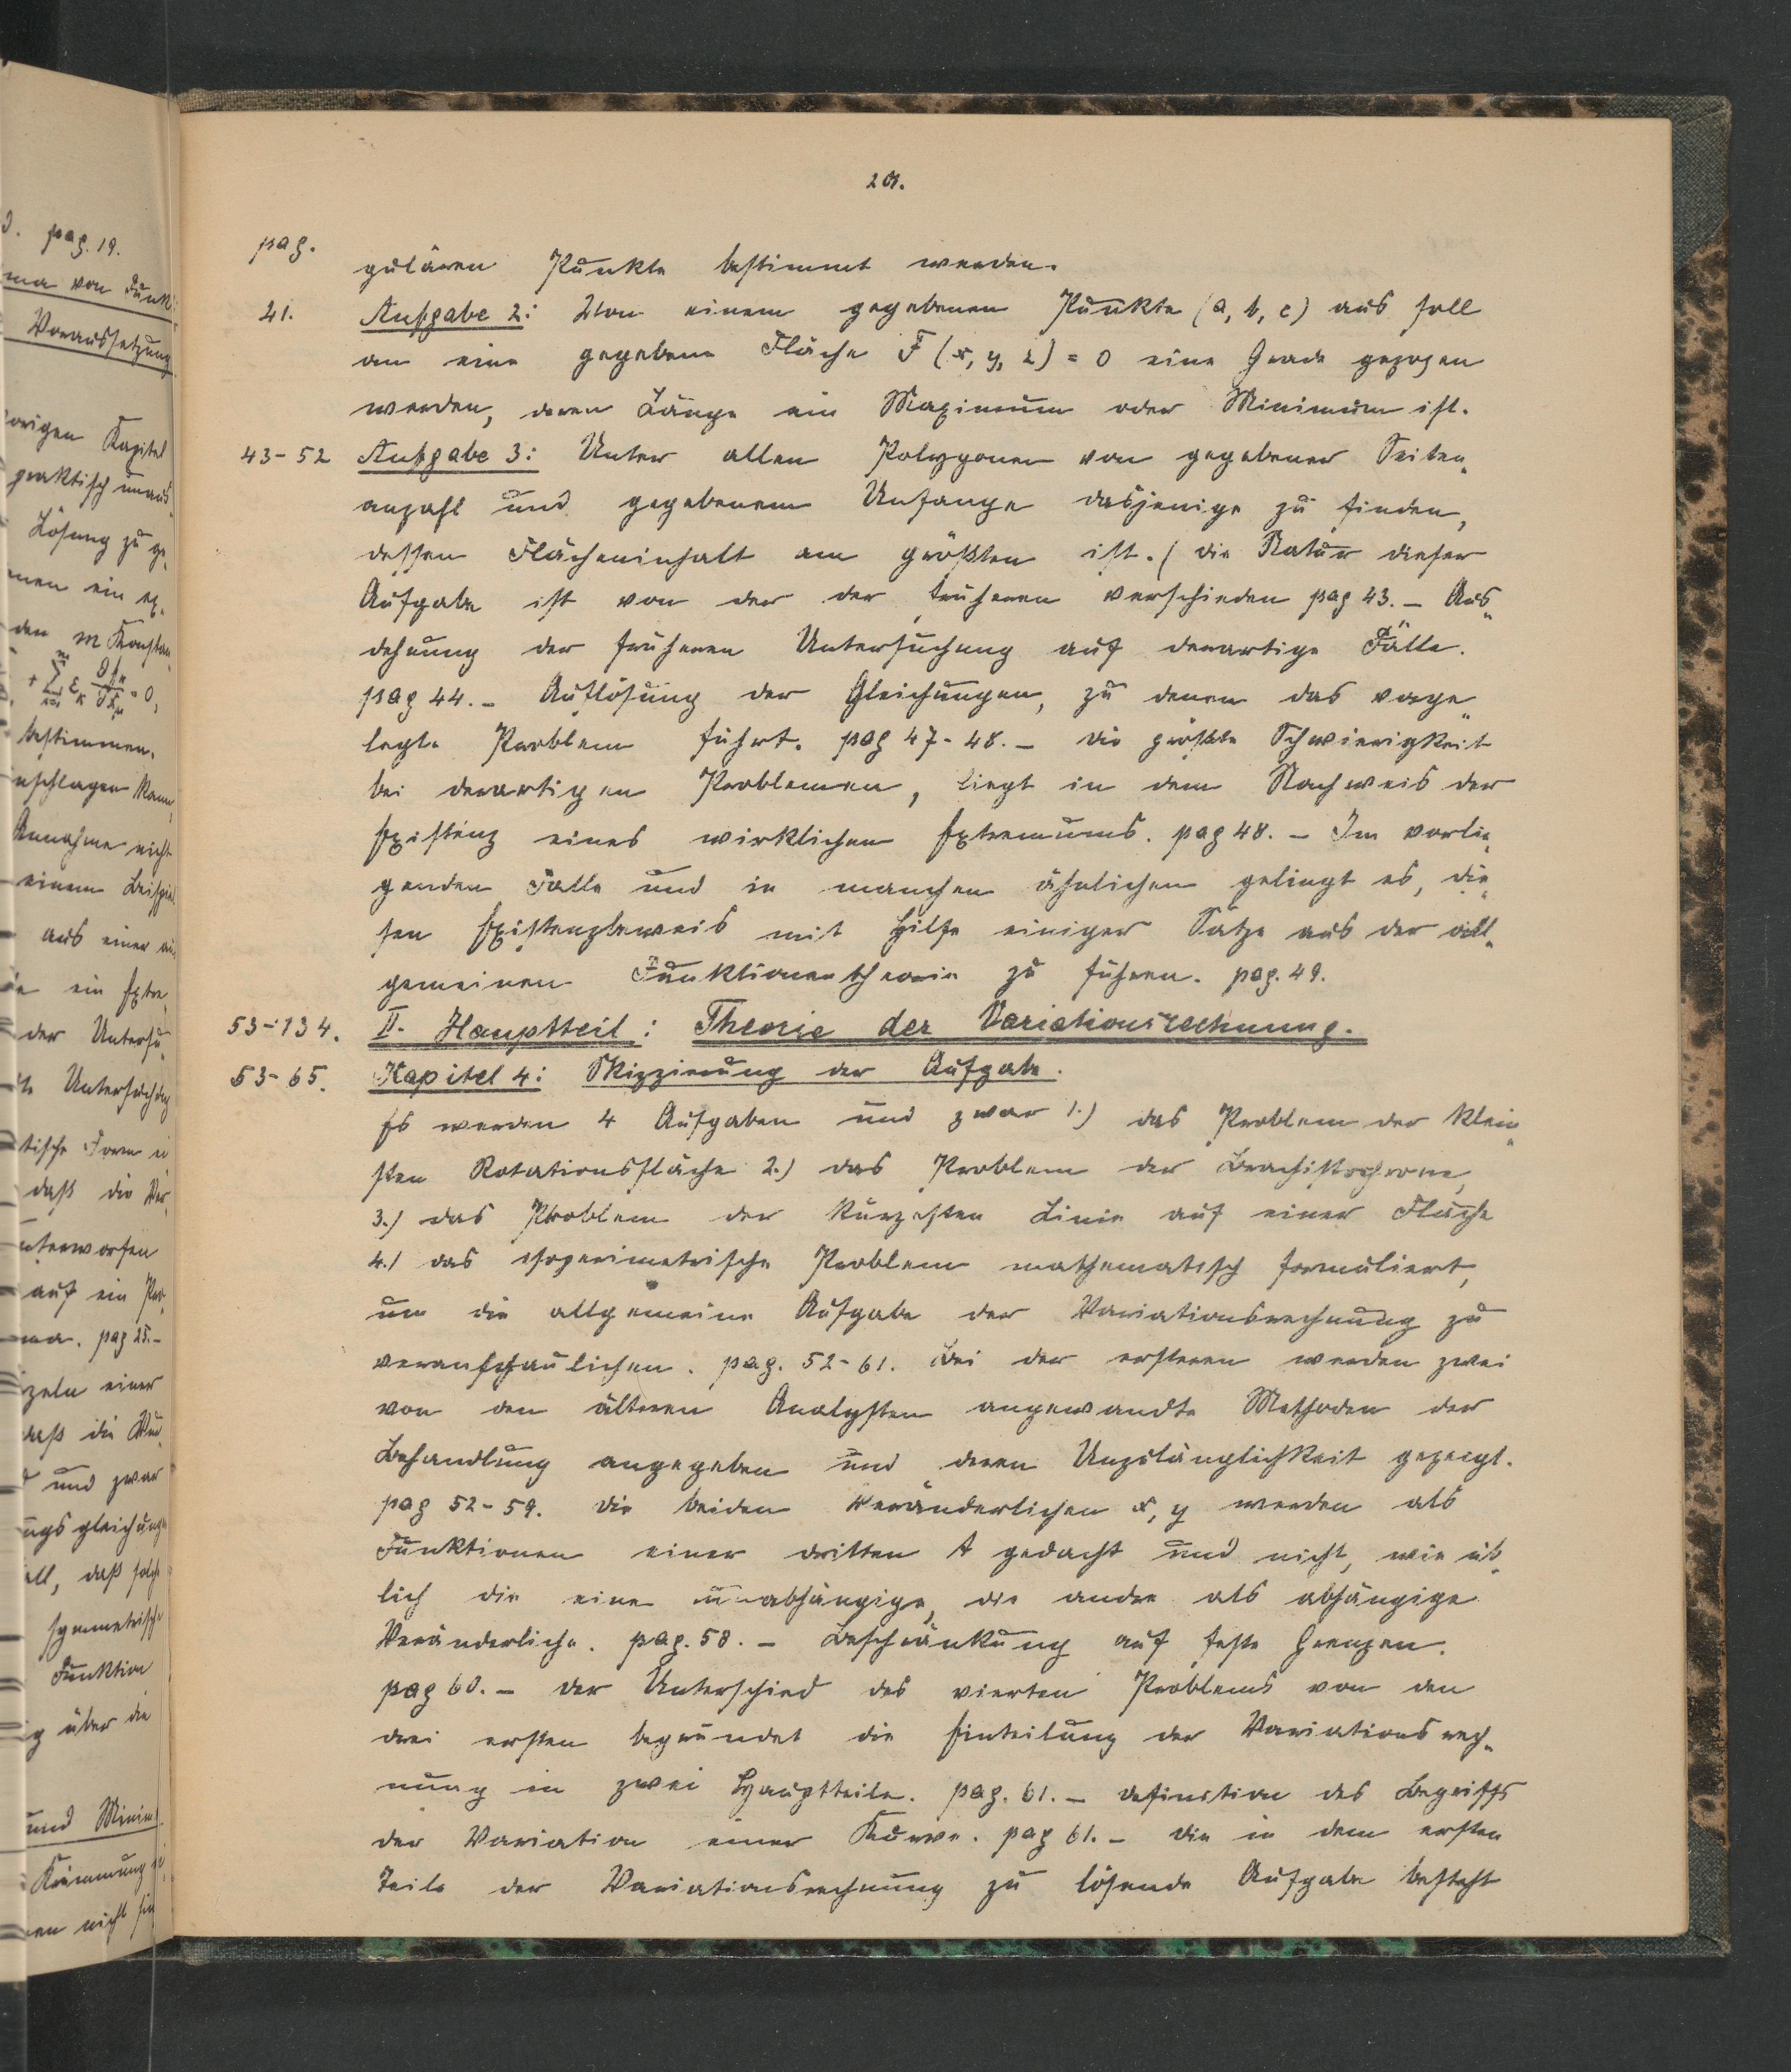 201.
pag.
gulären Punkte bestimmt werden.
41. Aufgabe 2: Von einem gegebenen Punkte (a, b, c) aus soll
an eine gegebene Fläche F (x, y, z) = 0 eine Grade gezogen
werden, deren Länge ein Maximum oder Minimum ist.
43-52 Aufgabe 3: Unter allen Polygonen von gegebener Seiten„
anzahl und gegebenem Umfange dasjenige zu finden,
dessen Flächeninhalt am größten ist. (die Natur dieser
Aufgabe ist von der der früheren verschieden pag 43. – Aus„
dehnung der früheren Untersuchung auf derartige Fälle.
pag 44. – Auflösung der Gleichungen, zu denen das vorge„
legte Problem führt. pag 47-48. – die größte Schwierigkeit
bei derartigen Problemen, liegt in dem Nachweis der
Existenz eines wirklichen Extremums. pag 48. – Im vorlie„
genden Falle und in manchen ähnlichen gelingt es, die„
sen Existenzbeweis mit Hilfe einiger Sätze aus der all„
gemeinen Funktionentheorie zu führen. pag. 49.
53-134. II. Hauptteil: Theorie der Variationsrechnung.
53-65. Kapitel 4: Skizzirung der Aufgabe.
Es werden 4 Aufgaben und zwar 1.) das Problem der klein„
sten Rotationsfläche 2.) das Problem der Brachistochrone,
3.) das Problem der kürzesten Linie auf einer Fläche
4.) das isoperimetrische Problem mathematisch formuliert,
um die allgemeine Aufgabe der Variationsrechnung zu
veranschaulichen. pag. 52-61. Bei der ersteren werden zwei
von den älteren Analysten angewandte Methoden der
Behandlung angegeben und deren Unzulänglichkeit gezeigt.
pag 52-59. die beiden Veränderlichen x, y werden als
Funktionen einer dritten t gedacht und nicht, wie üb„
lich die eine unabhängige, die andre als abhängige
Veränderliche. pag. 58. – Beschränkung auf feste Grenzen.
pag 60. – der Unterschied des vierten Problems von den
drei ersten begründet die Einteilung der Variationsrech„
nung in zwei Hauptteile. pag. 61. – definition des Begriffs
der Variation einer Kurve. pag 61. – die in dem ersten
Teile der Variationsrechnung zu lösende Aufgabe besteht